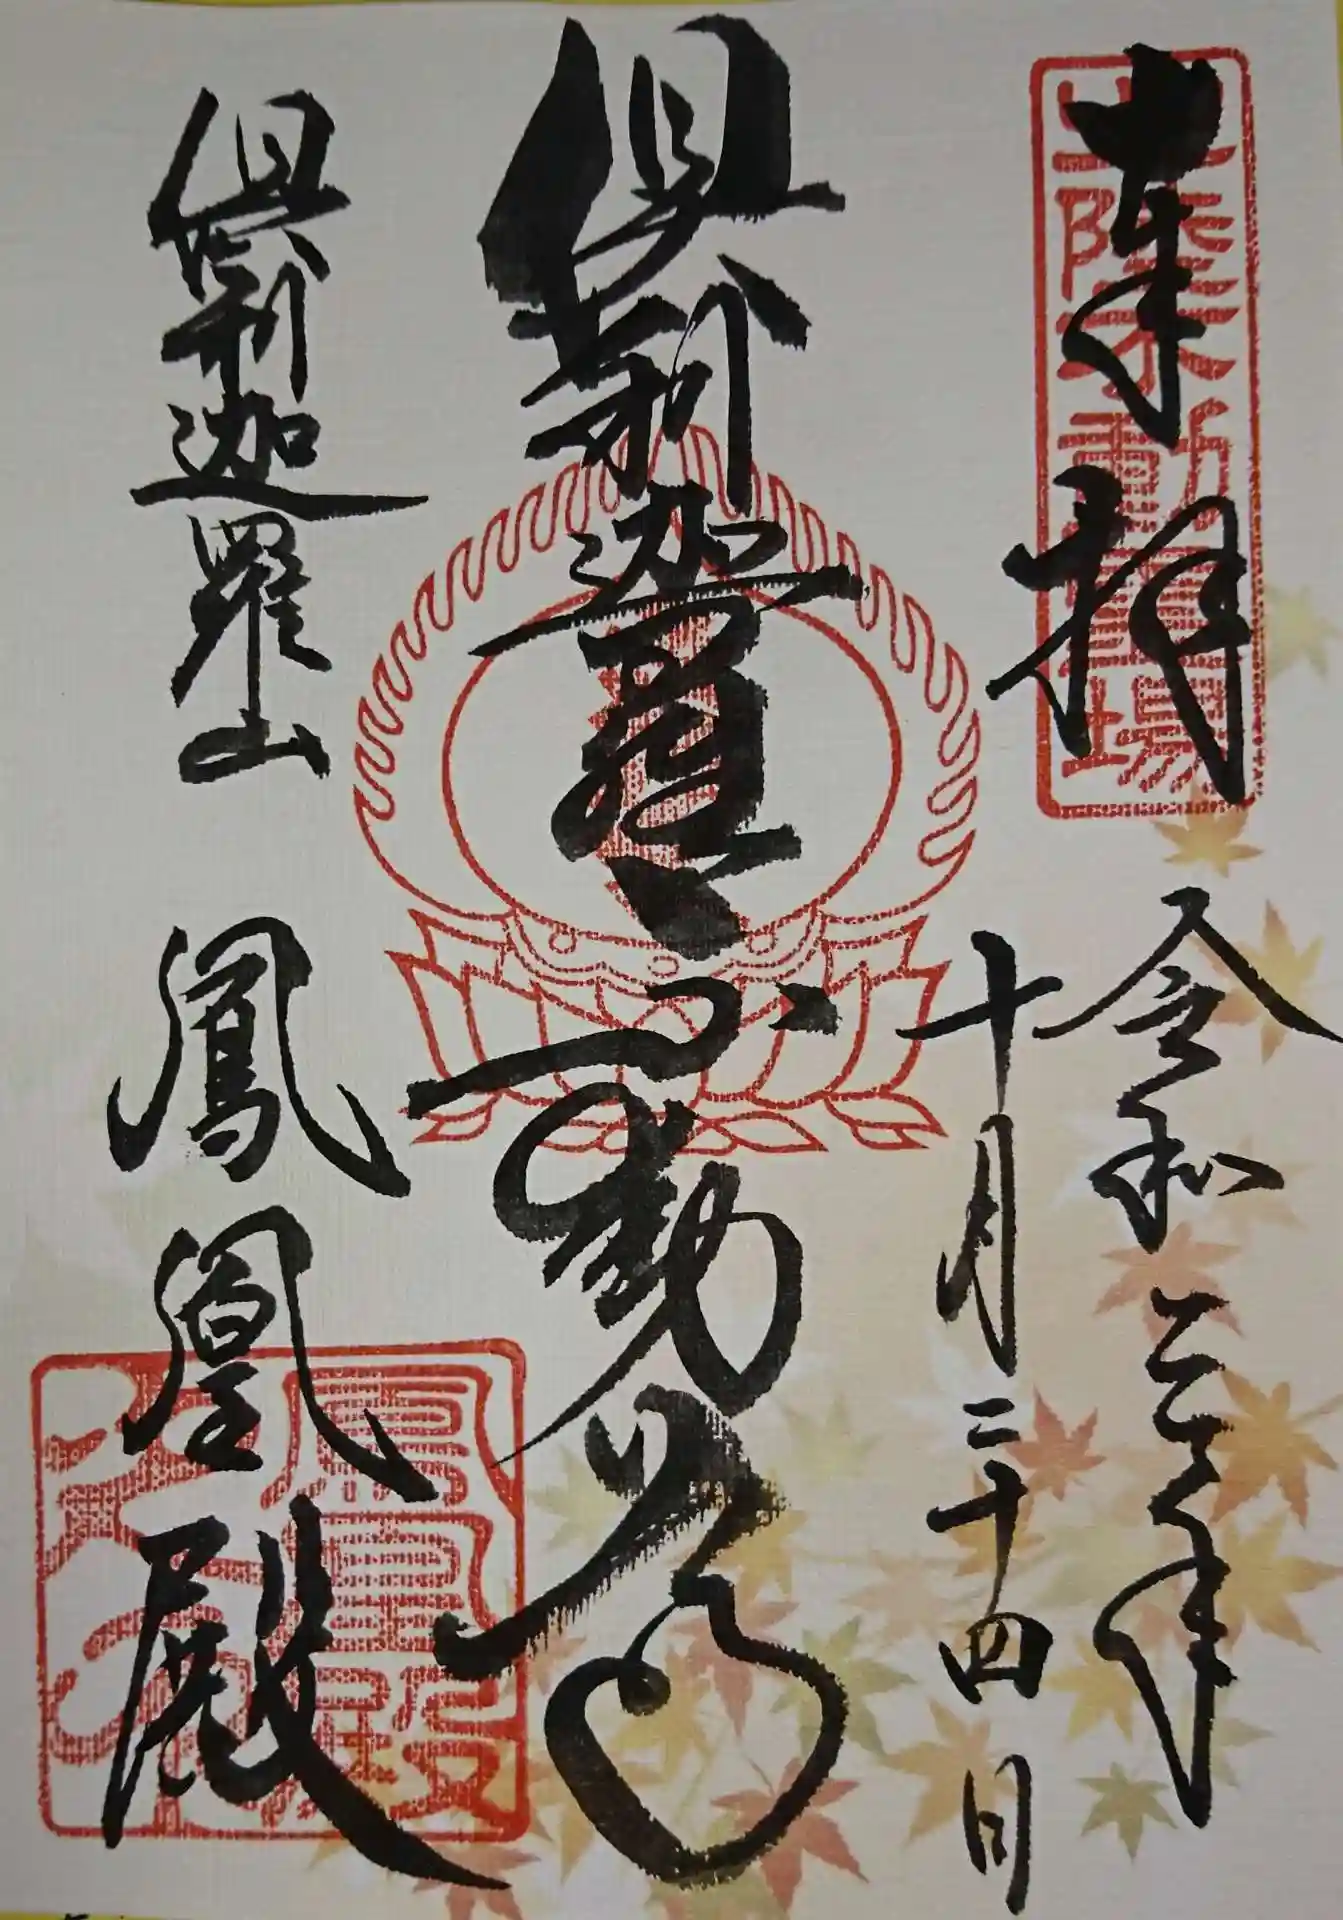 奉拝
北陸不動霊場
令和三年
十月二十四日
倶利迦羅不動尊
倶利迦羅山
鳳凰殿